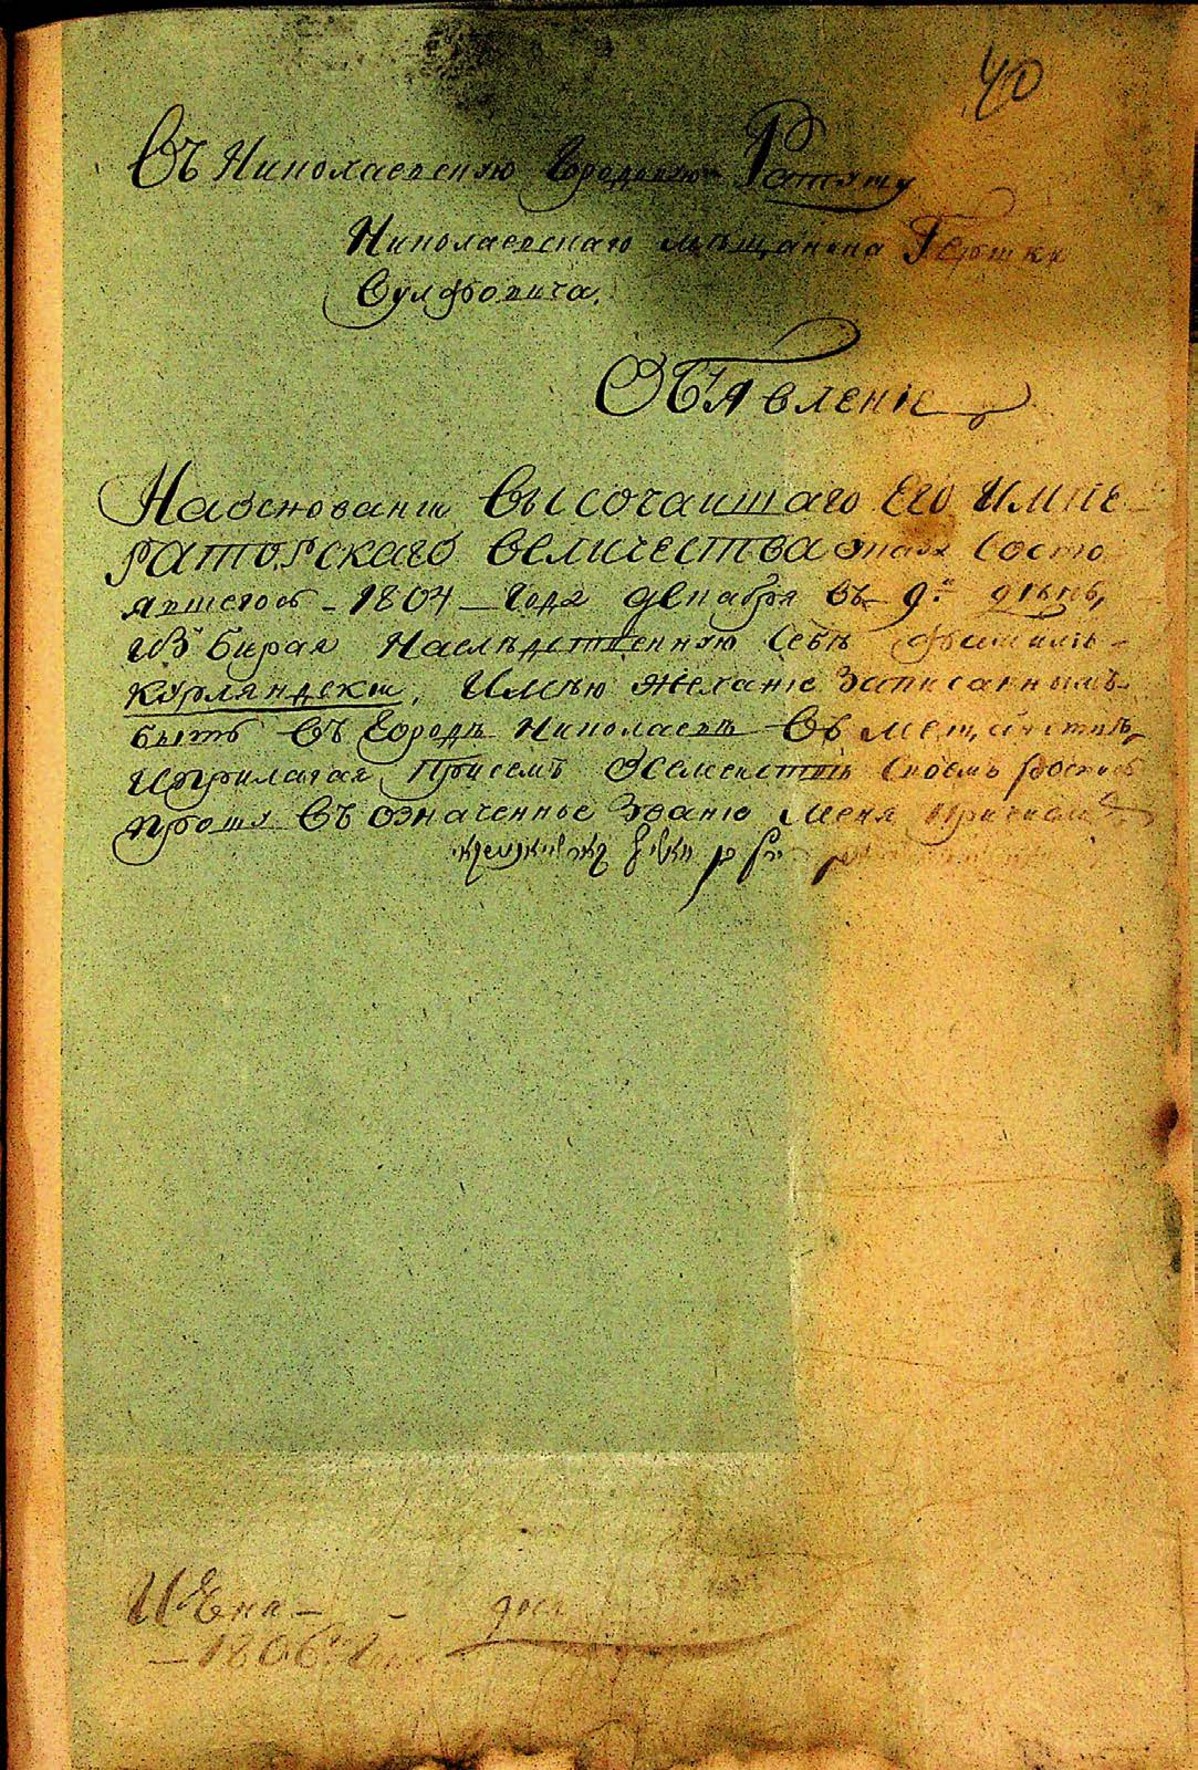 40
Въ Николаевскую Городовую Ратушу
Николаевскаго мещанина Гершка
Вулфовича.
Объявленіе
На основаніи Высочаишаго Его Импе
раторскаго величества указа состо
явшегося - 1804 - Года декабря въ 9й день,
Избирая Наследственную себѣ фамилію
Курляндски, Имѣю желаніе Записаннымъ
быть въ Городѣ Николаевѣ въ мещанствѣ,
Иприлагая Присемъ Осемействѣ своемъ роспись
прошу въ означенное Званіе меня
Июня - - дня
- 1806го